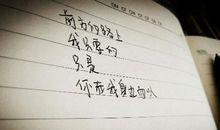 前方的路上
我只要的
只是
你在我身边